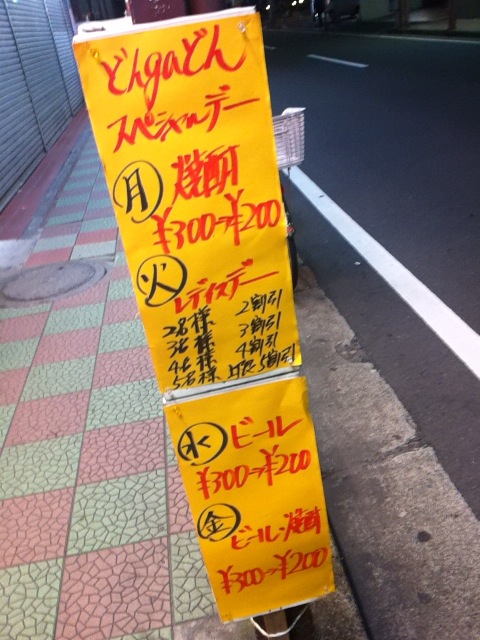 どんgaどん
スペシャルデー
月 焼酎
¥300→¥200
火
レディスデー
2名様 2割引
3名様 3割引
4名様 4割引
5名様 上限5割引
水 ビール
¥300→¥200
金
ビール・焼酎
¥300→¥200